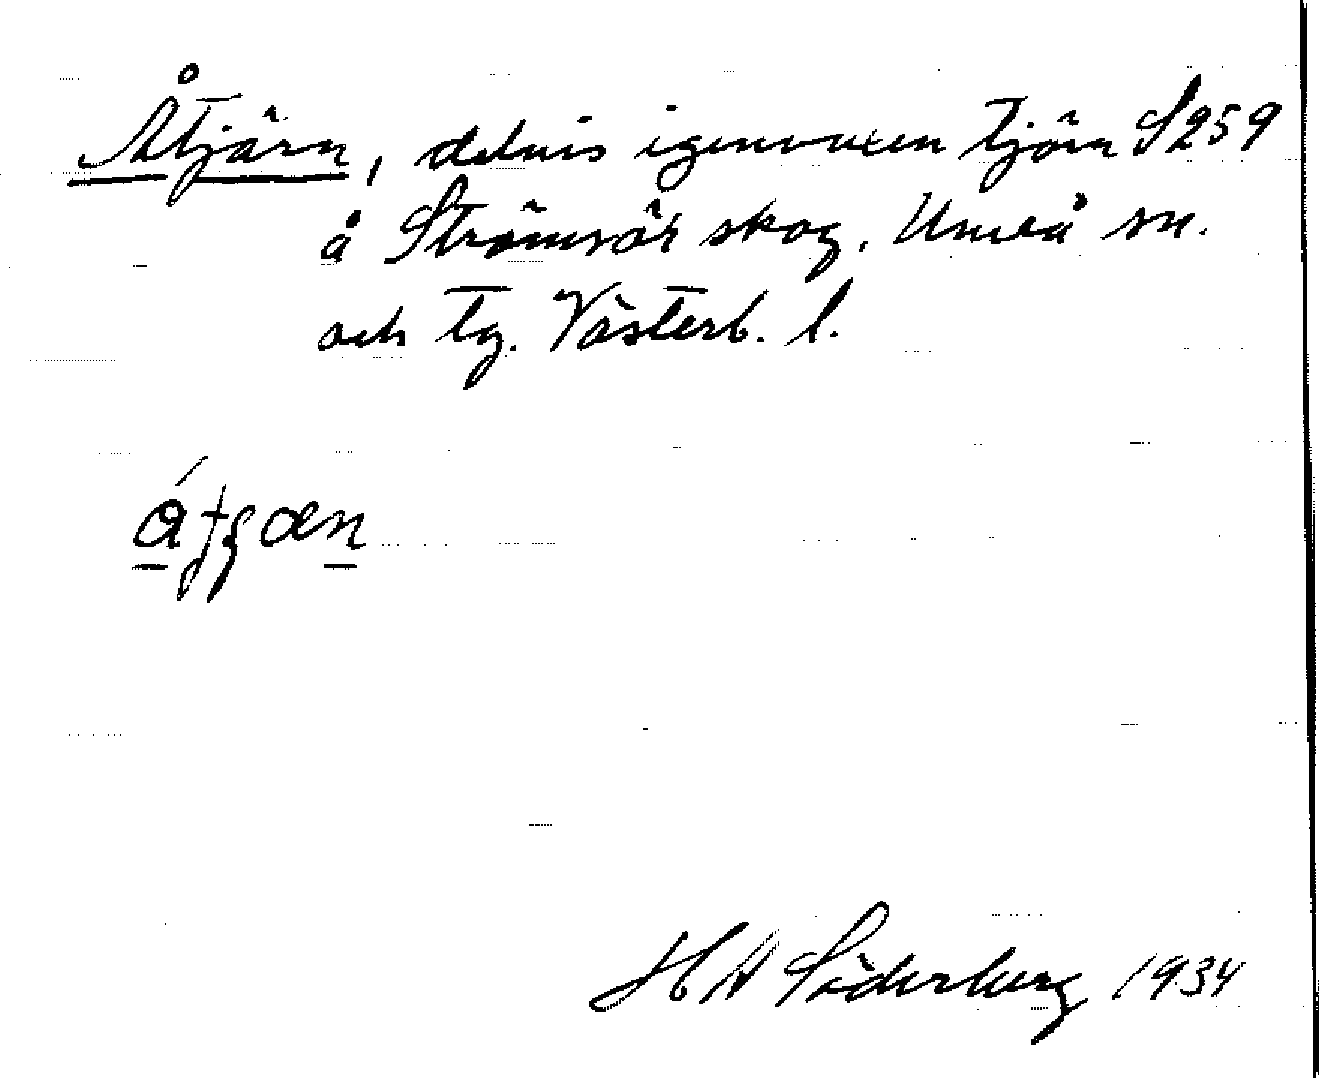 Åtjärn, delvis igenvuxen tjärn S259
å Strömsör skog. Umeå sn.
och tg. Västerb. l.
H A Söderberg 1934